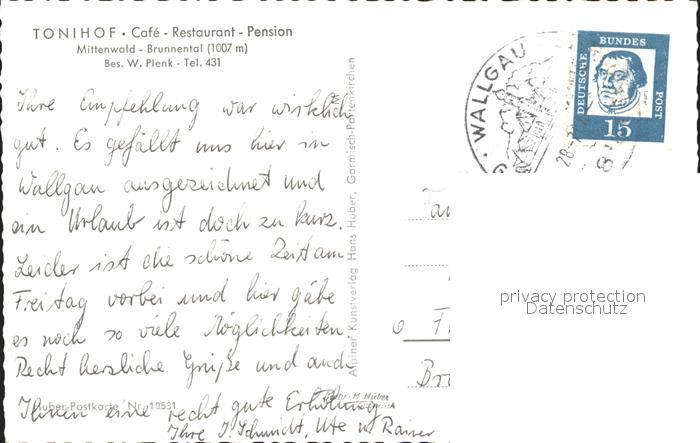 TONIHOF • Café - Restaurant - Pension
Mittenwald - Brunnental (1007 m)
Bes. W. Plenk · Tel. 431
Ihre Empfehlung war wirklich
gut. Es gefällt uns hier in
Wallgau ausgezeichnet und
ein Urlaub ist doch zu kurz.
Leider ist die schöne Zeit am
Freitag vorbei und hier gäbe
es noch so viele Möglichkeiten.
Recht herzliche Grüße und auch
Ihnen eine recht gute Erholung
Ihre J. Schmidt, Ute u. Rainer
Huber-Postkarte Nr. 10531
Foto-H. Huber
Alpiner Kunstverlag Hans Huber, Garmisch-Partenkirchen
WALLGAU
28.
DEUTSCHE
BUNDES
POST
15
privacy protection
Datenschutz